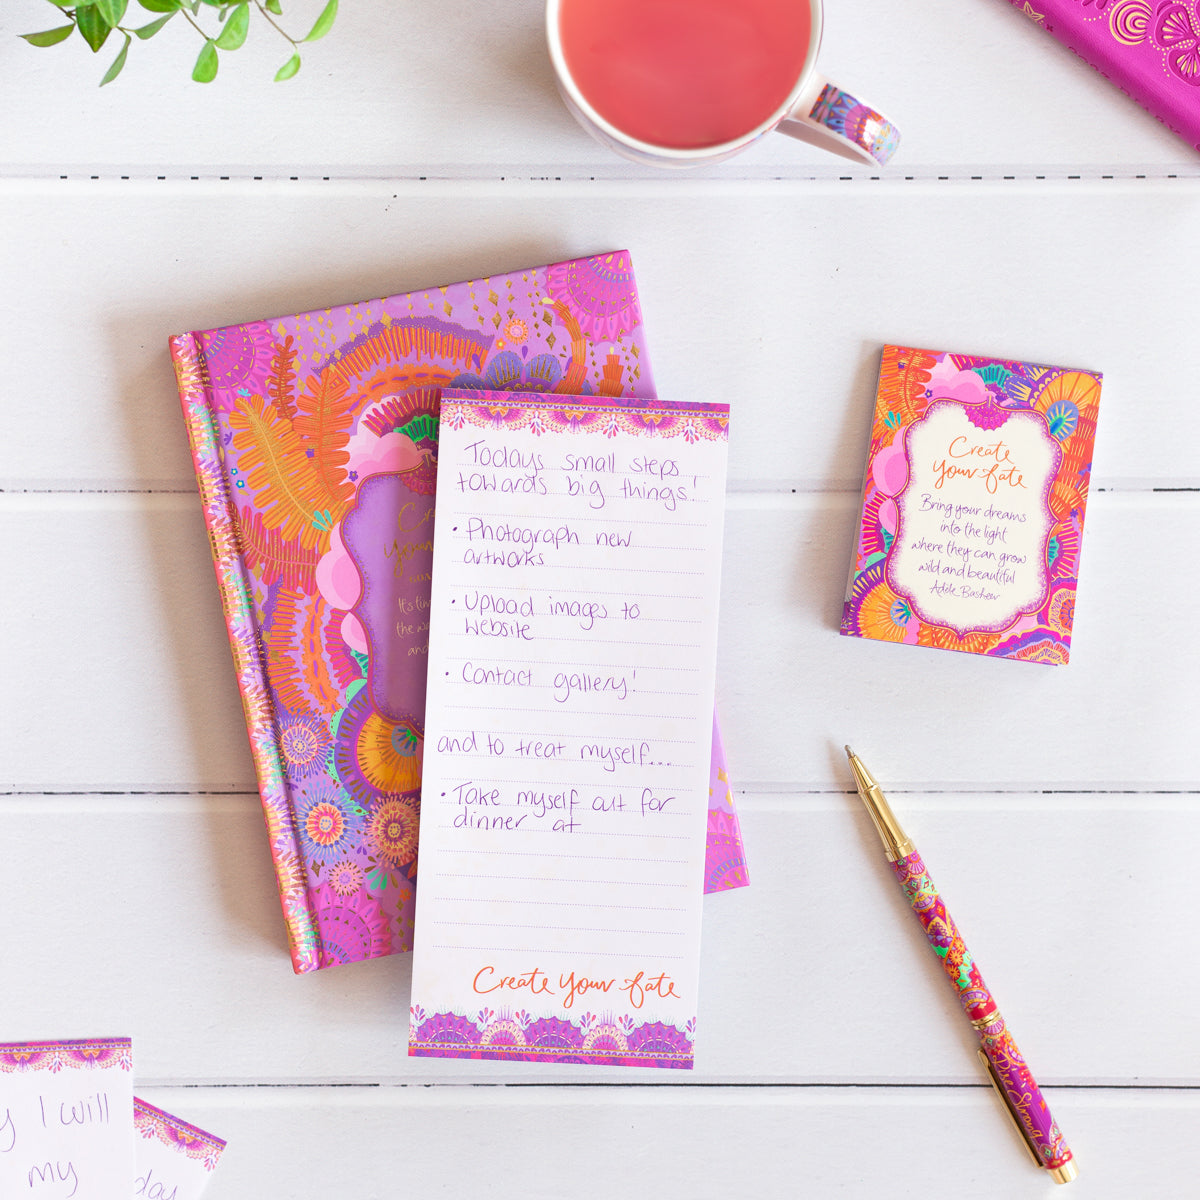 Todays small steps
towards big things!
• Photograph new
artworks
• Upload images to
website
• Contact gallery!
and to treat myself...
• Take myself out for
dinner at
Create Your Fate
Create
Your Fate
Bring your dreams
into the light
where they can grow
wild and beautiful
Adele Basheer
It's
the
and
I will
my
day
Rise Strong